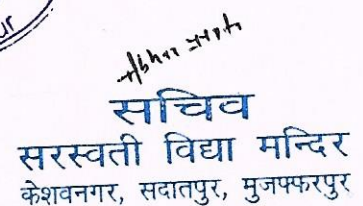 सचिव
सरस्वती विद्या मन्दिर
केशवनगर, सदातपुर, मुजफ्फरपुर